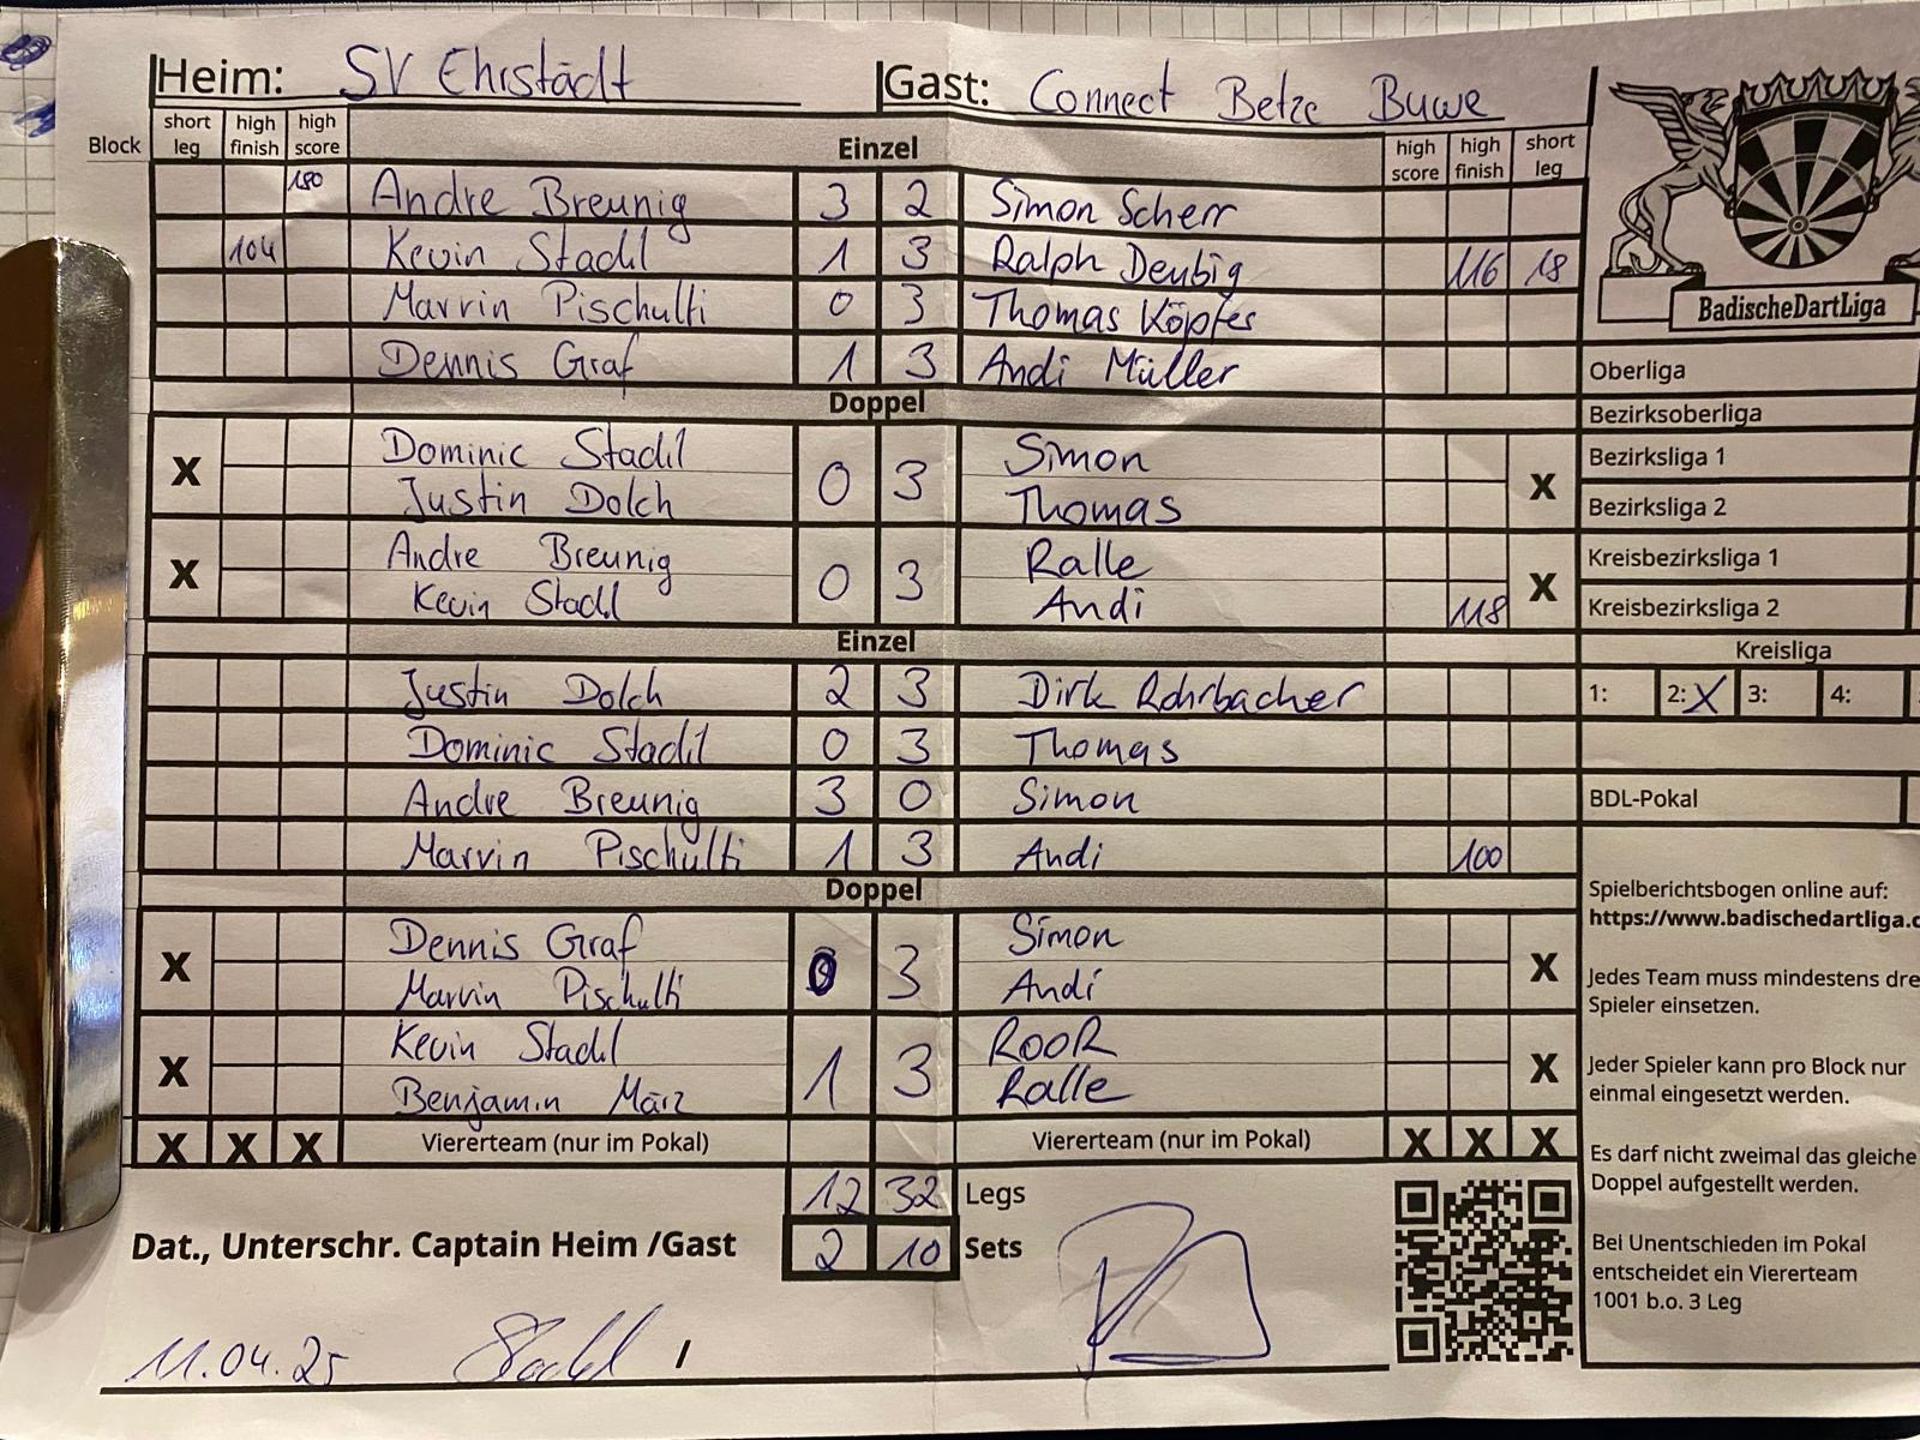 Heim: SV Ehrstädt Gast: Connect Betze Buwe
Block short leg high finish high score Einzel high score high finish short leg
180 Andre Breunig 3 2 Simon Scherr
104 Kevin Stadil 1 3 Ralph Deubig 116 18
Marvin Pischulti 0 3 Thomas Köpfer
Dennis Graf 1 3 Andi Müller
Doppel
X Dominic Stadil 0 3 Simon X
Justin Dolch Thomas
X Andre Breunig 0 3 Ralle X
Kevin Stadil Andi 118
Einzel
Justin Dolch 2 3 Dirk Rohrbacher
Dominic Stadil 0 3 Thomas
Andre Breunig 3 0 Simon
Marvin Pischulti 1 3 Andi 100
Doppel
X Dennis Graf 0 3 Simon X
Marvin Pischulti Andi
X Kevin Stadil 1 3 RooR X
Benjamin März Ralle
X X X Viererteam (nur im Pokal) Viererteam (nur im Pokal) X X X
12 32 Legs
Dat., Unterschr. Captain Heim /Gast 2 10 Sets
11.04.25 /
BadischeDartLiga
Oberliga
Bezirksoberliga
Bezirksliga 1
Bezirksliga 2
Kreisbezirksliga 1
Kreisbezirksliga 2
Kreisliga
1: 2: X 3: 4:
BDL-Pokal
Spielberichtsbogen online auf:
https://www.badischedartliga.
Jedes Team muss mindestens dre
Spieler einsetzen.
Jeder Spieler kann pro Block nur
einmal eingesetzt werden.
Es darf nicht zweimal das gleiche
Doppel aufgestellt werden.
Bei Unentschieden im Pokal
entscheidet ein Viererteam
1001 b.o. 3 Leg